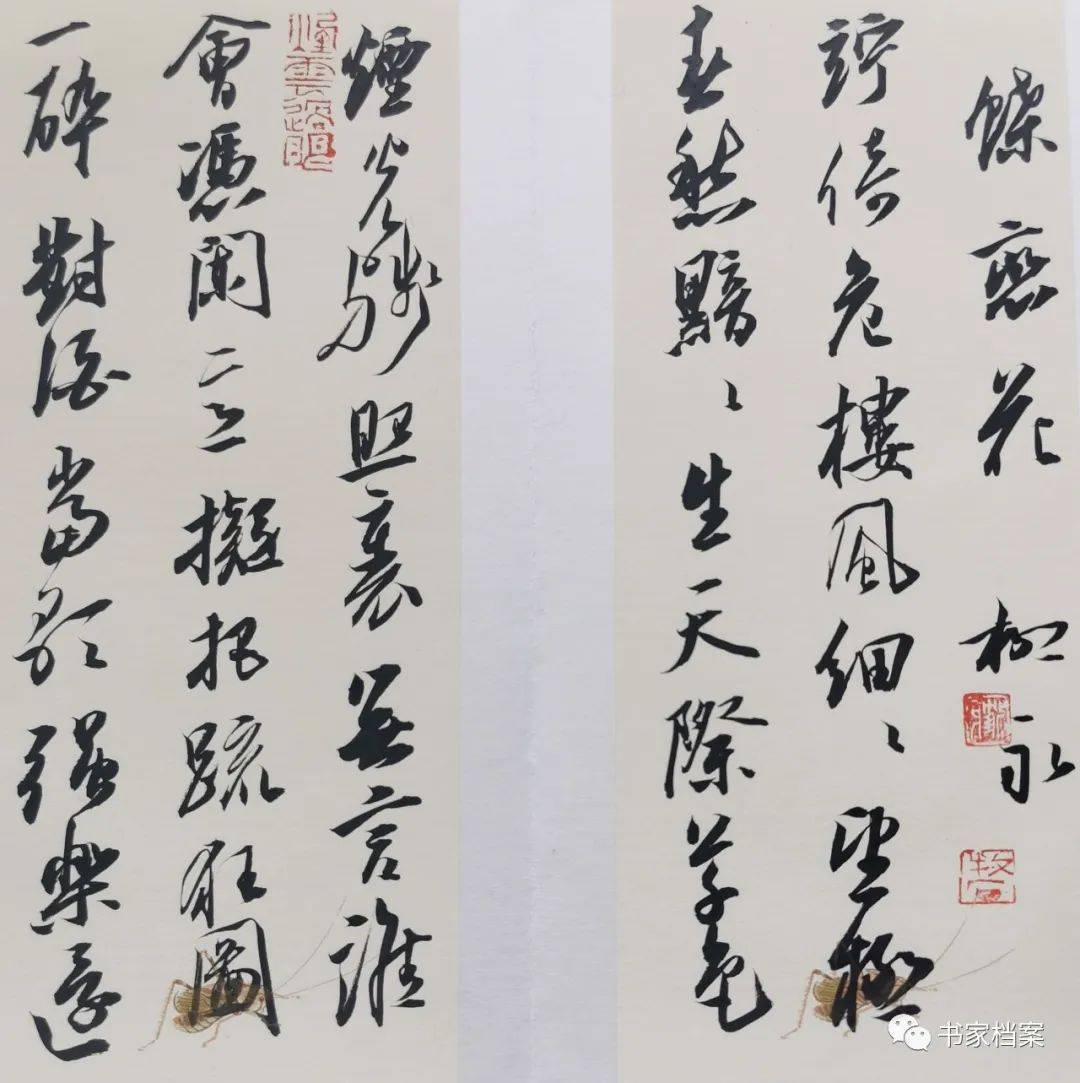 蝶戀花 柳永
竚倚危樓風細〻望極
春愁黯〻生天際草色
煙光殘照裏無言誰
會憑闌意擬把疏狂圖
一醉對酒當歌強樂還
书家档案